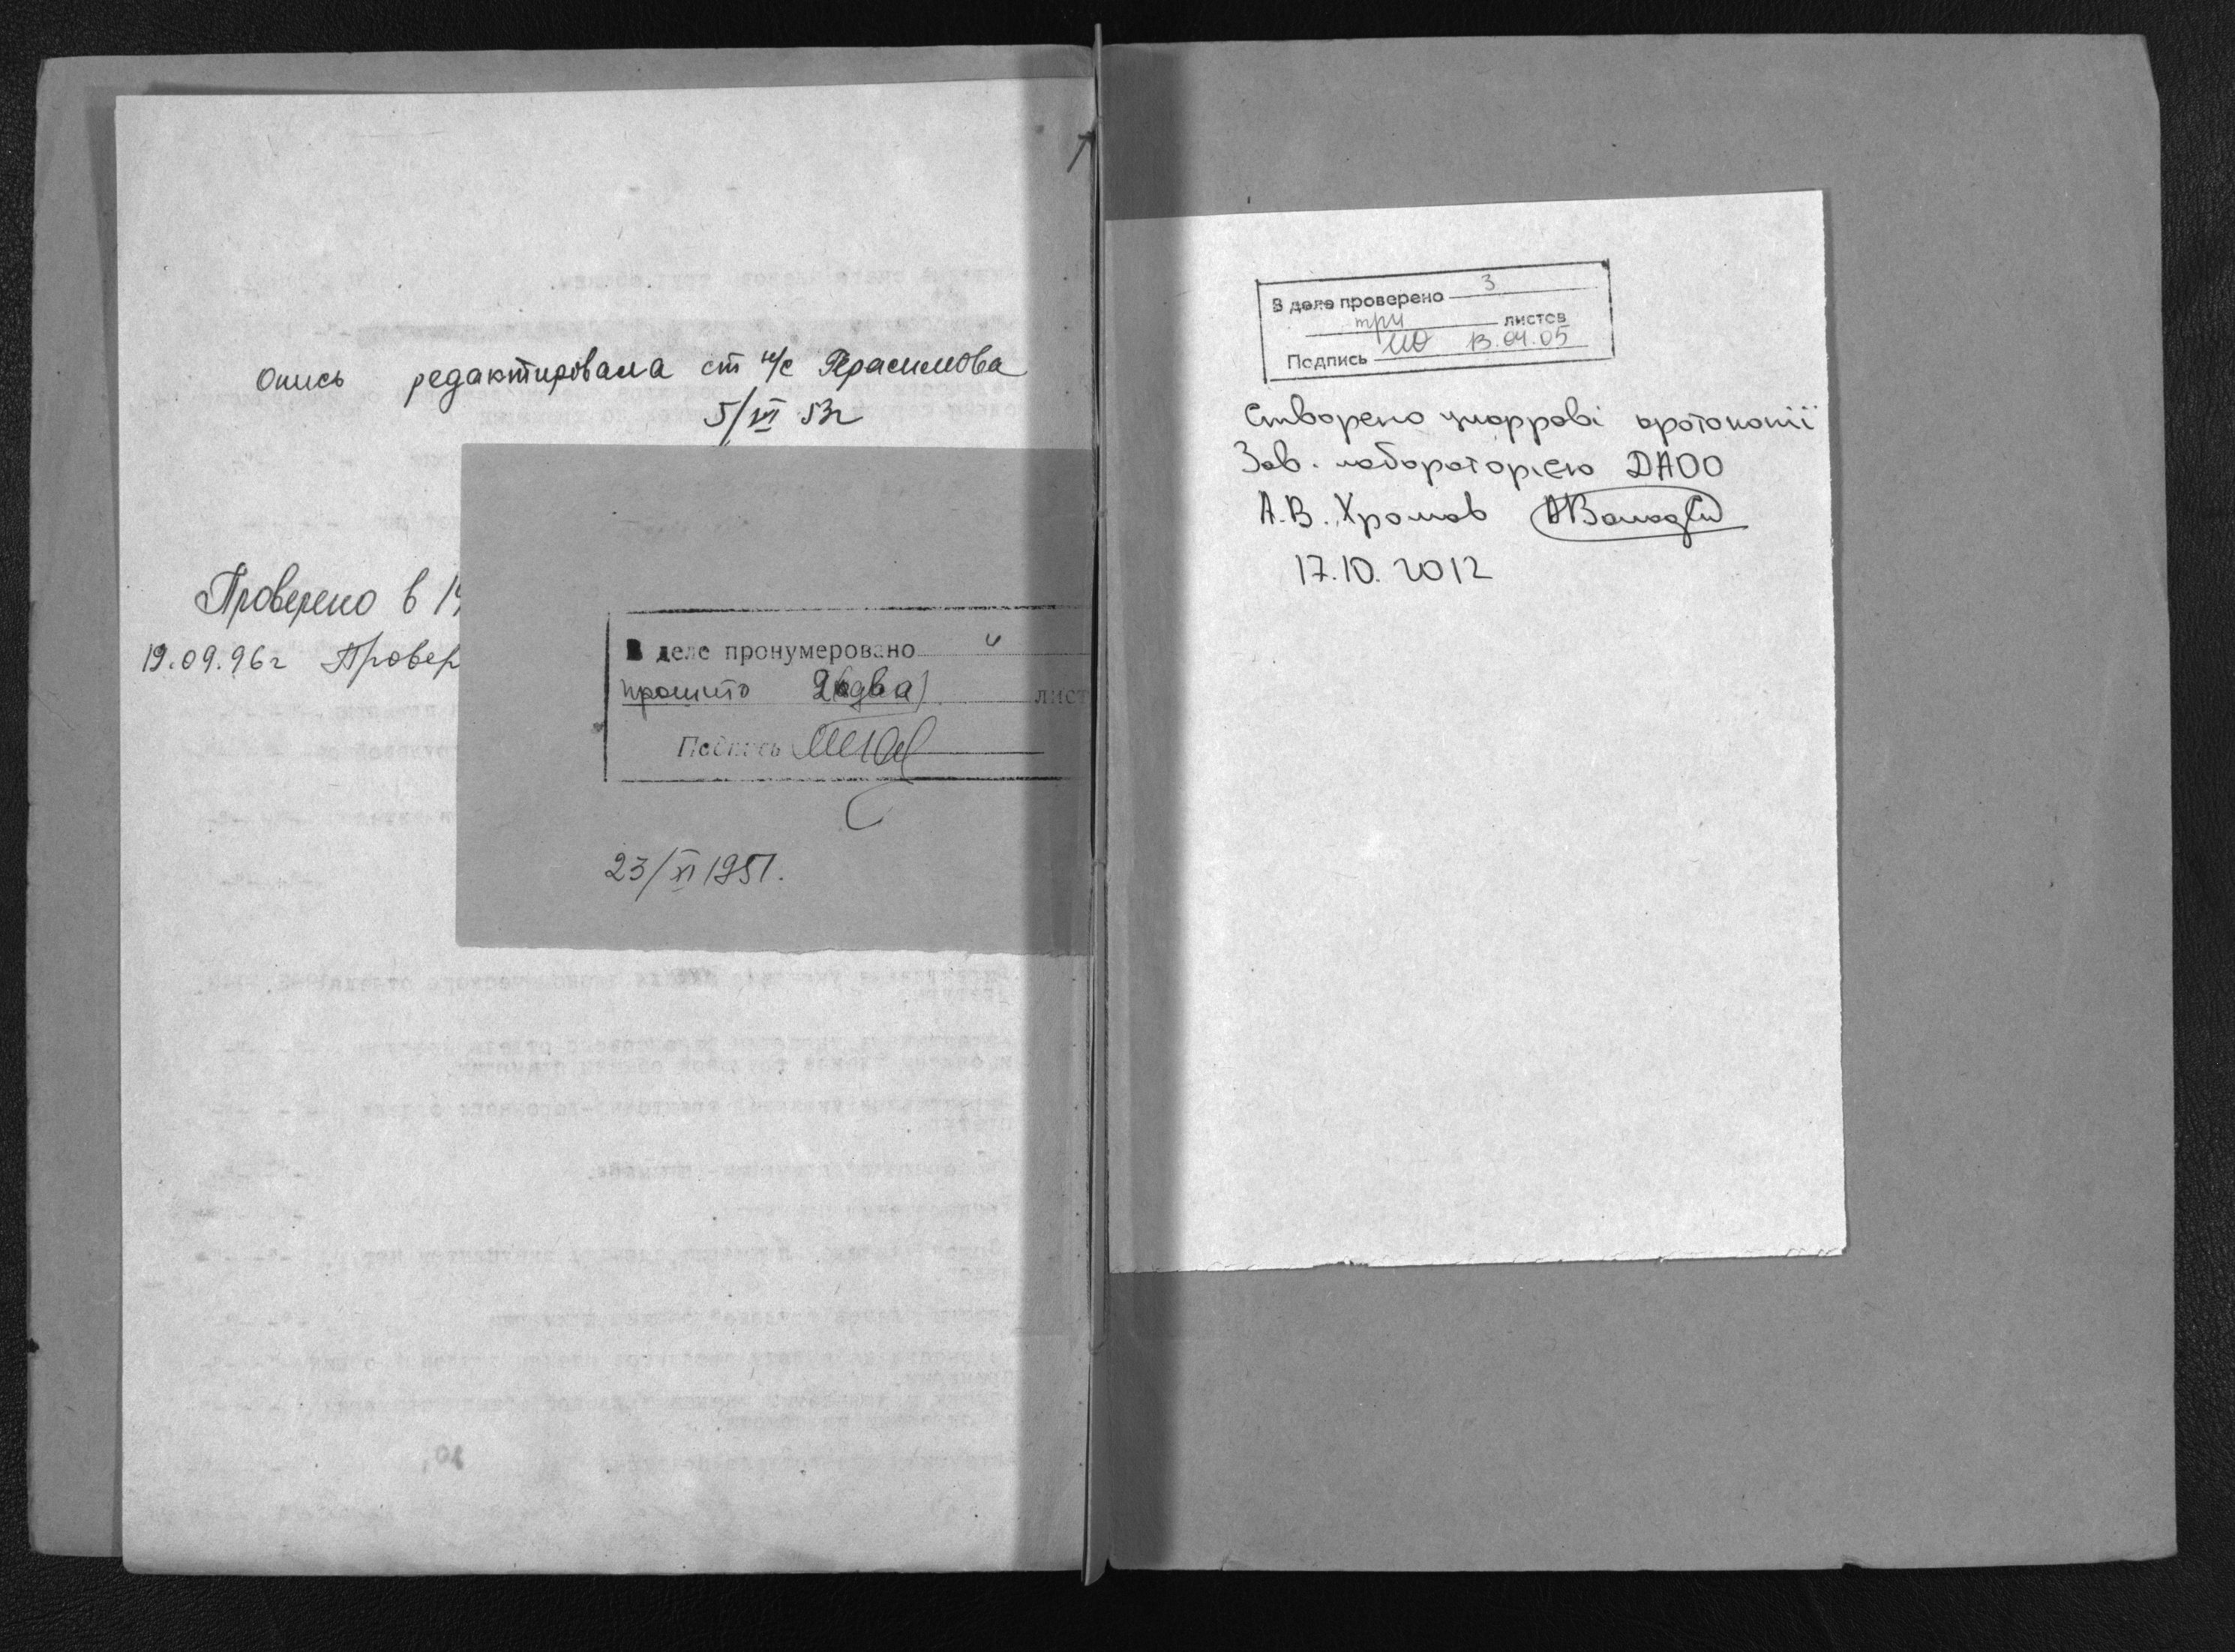 Опись редактировала ст н/с Герасимова
5/VI 53г
Проверено в 19
19.09.96г Провер
В деле пронумеровано и
прошито 2 (два) лист
Подпись
23/XI 1951.
В деле проверено 3
три листов
Подпись 13.04.05
Створено цифрові фотокопії
Зав. лабораторією ДАОО
А.В. Хромов
17.10.2012